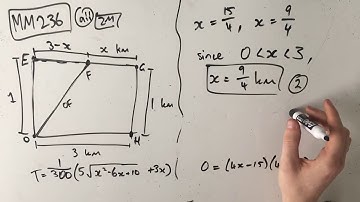 MM236
(aii)
2M
3-x
x km
E
F
G
1
df
1 km
O
H
3 km
T = 1/300 (5√x²-6x+10 + 3x)
x = 15/4 , x = 9/4
since 0 < x < 3,
x = 9/4 km
2
0 = (4x-15)(4